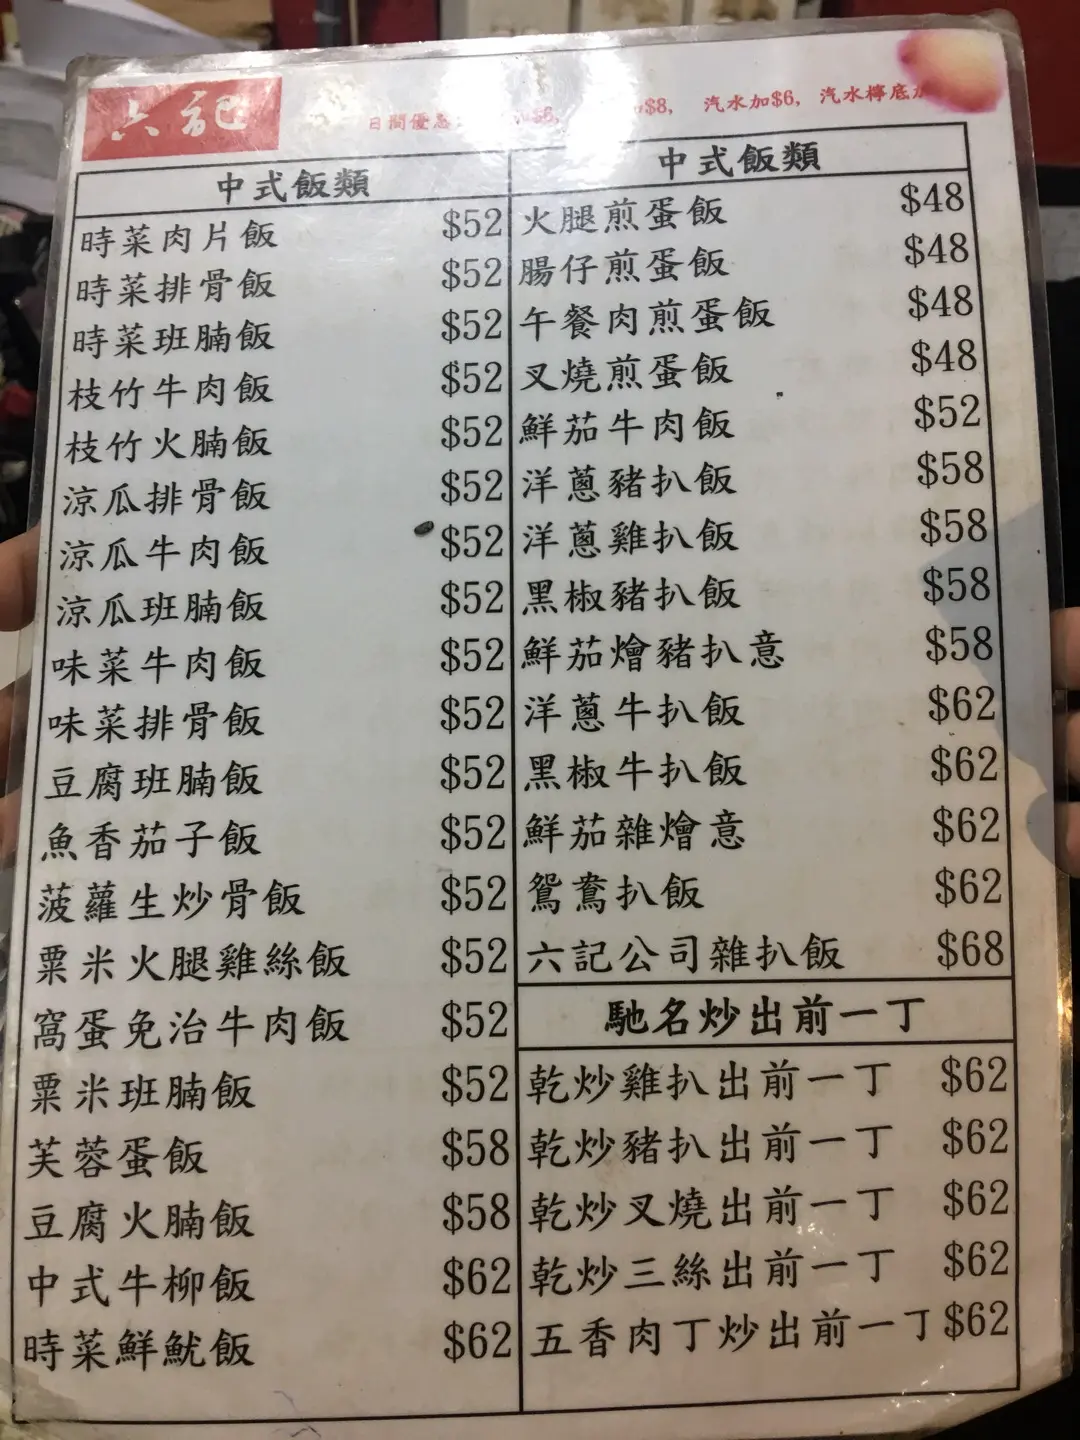 六記
日間優惠 $6, $8, 汽水加$6, 汽水檸底加
中式飯類
時菜肉片飯 $52
時菜排骨飯 $52
時菜班腩飯 $52
枝竹牛肉飯 $52
枝竹火腩飯 $52
涼瓜排骨飯 $52
涼瓜牛肉飯 $52
涼瓜班腩飯 $52
味菜牛肉飯 $52
味菜排骨飯 $52
豆腐班腩飯 $52
魚香茄子飯 $52
菠蘿生炒骨飯 $52
粟米火腿雞絲飯 $52
窩蛋免治牛肉飯 $52
粟米班腩飯 $52
芙蓉蛋飯 $58
豆腐火腩飯 $58
中式牛柳飯 $62
時菜鮮魷飯 $62
中式飯類
火腿煎蛋飯 $48
腸仔煎蛋飯 $48
午餐肉煎蛋飯 $48
叉燒煎蛋飯 $48
鮮茄牛肉飯 $52
洋蔥豬扒飯 $58
洋蔥雞扒飯 $58
黑椒豬扒飯 $58
鮮茄燴豬扒意 $58
洋蔥牛扒飯 $62
黑椒牛扒飯 $62
鮮茄雜燴意 $62
鴛鴦扒飯 $62
六記公司雜扒飯 $68
馳名炒出前一丁
乾炒雞扒出前一丁 $62
乾炒豬扒出前一丁 $62
乾炒叉燒出前一丁 $62
乾炒三絲出前一丁 $62
五香肉丁炒出前一丁 $62